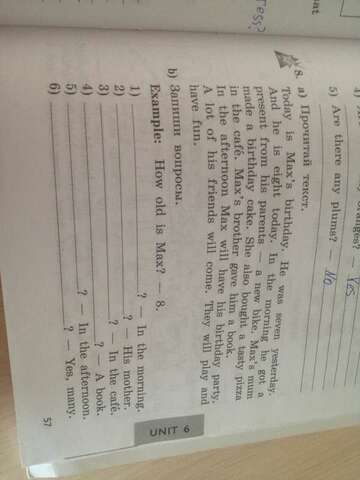 4)
oranges? — Yes
5) Are there any plums? — No
8. а) Прочитай текст.
Today is Max's birthday. He was seven yesterday.
And he is eight today. In the morning he got a
present from his parents — a new bike. Max's mum
made a birthday cake. She also bought a tasty pizza
in the café. Max's brother gave him a book.
In the afternoon Max will have his birthday party.
A lot of his friends will come. They will play and
have fun.
b) Запиши вопросы.
Example: How old is Max? — 8.
1) ? — In the morning.
2) ? — His mother.
3) ? — In the café.
4) ? — A book.
5) ? — In the afternoon.
6) ? — Yes, many.
UNIT 6
57